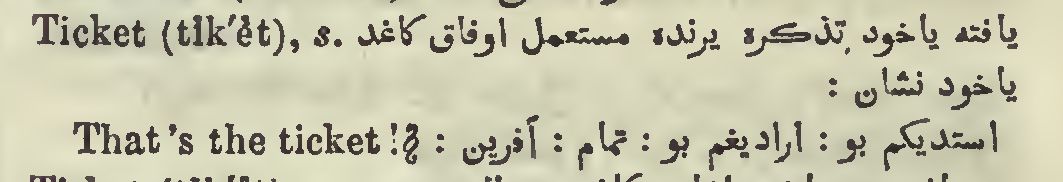 Ticket (tĭk′ĕt), s. يافته ياخود تذكره يرنده مستعمل اوفاق كاغد
ياخود نشان :
That's the ticket! استديكم بو : اراديغم بو : تمام : آفرين :